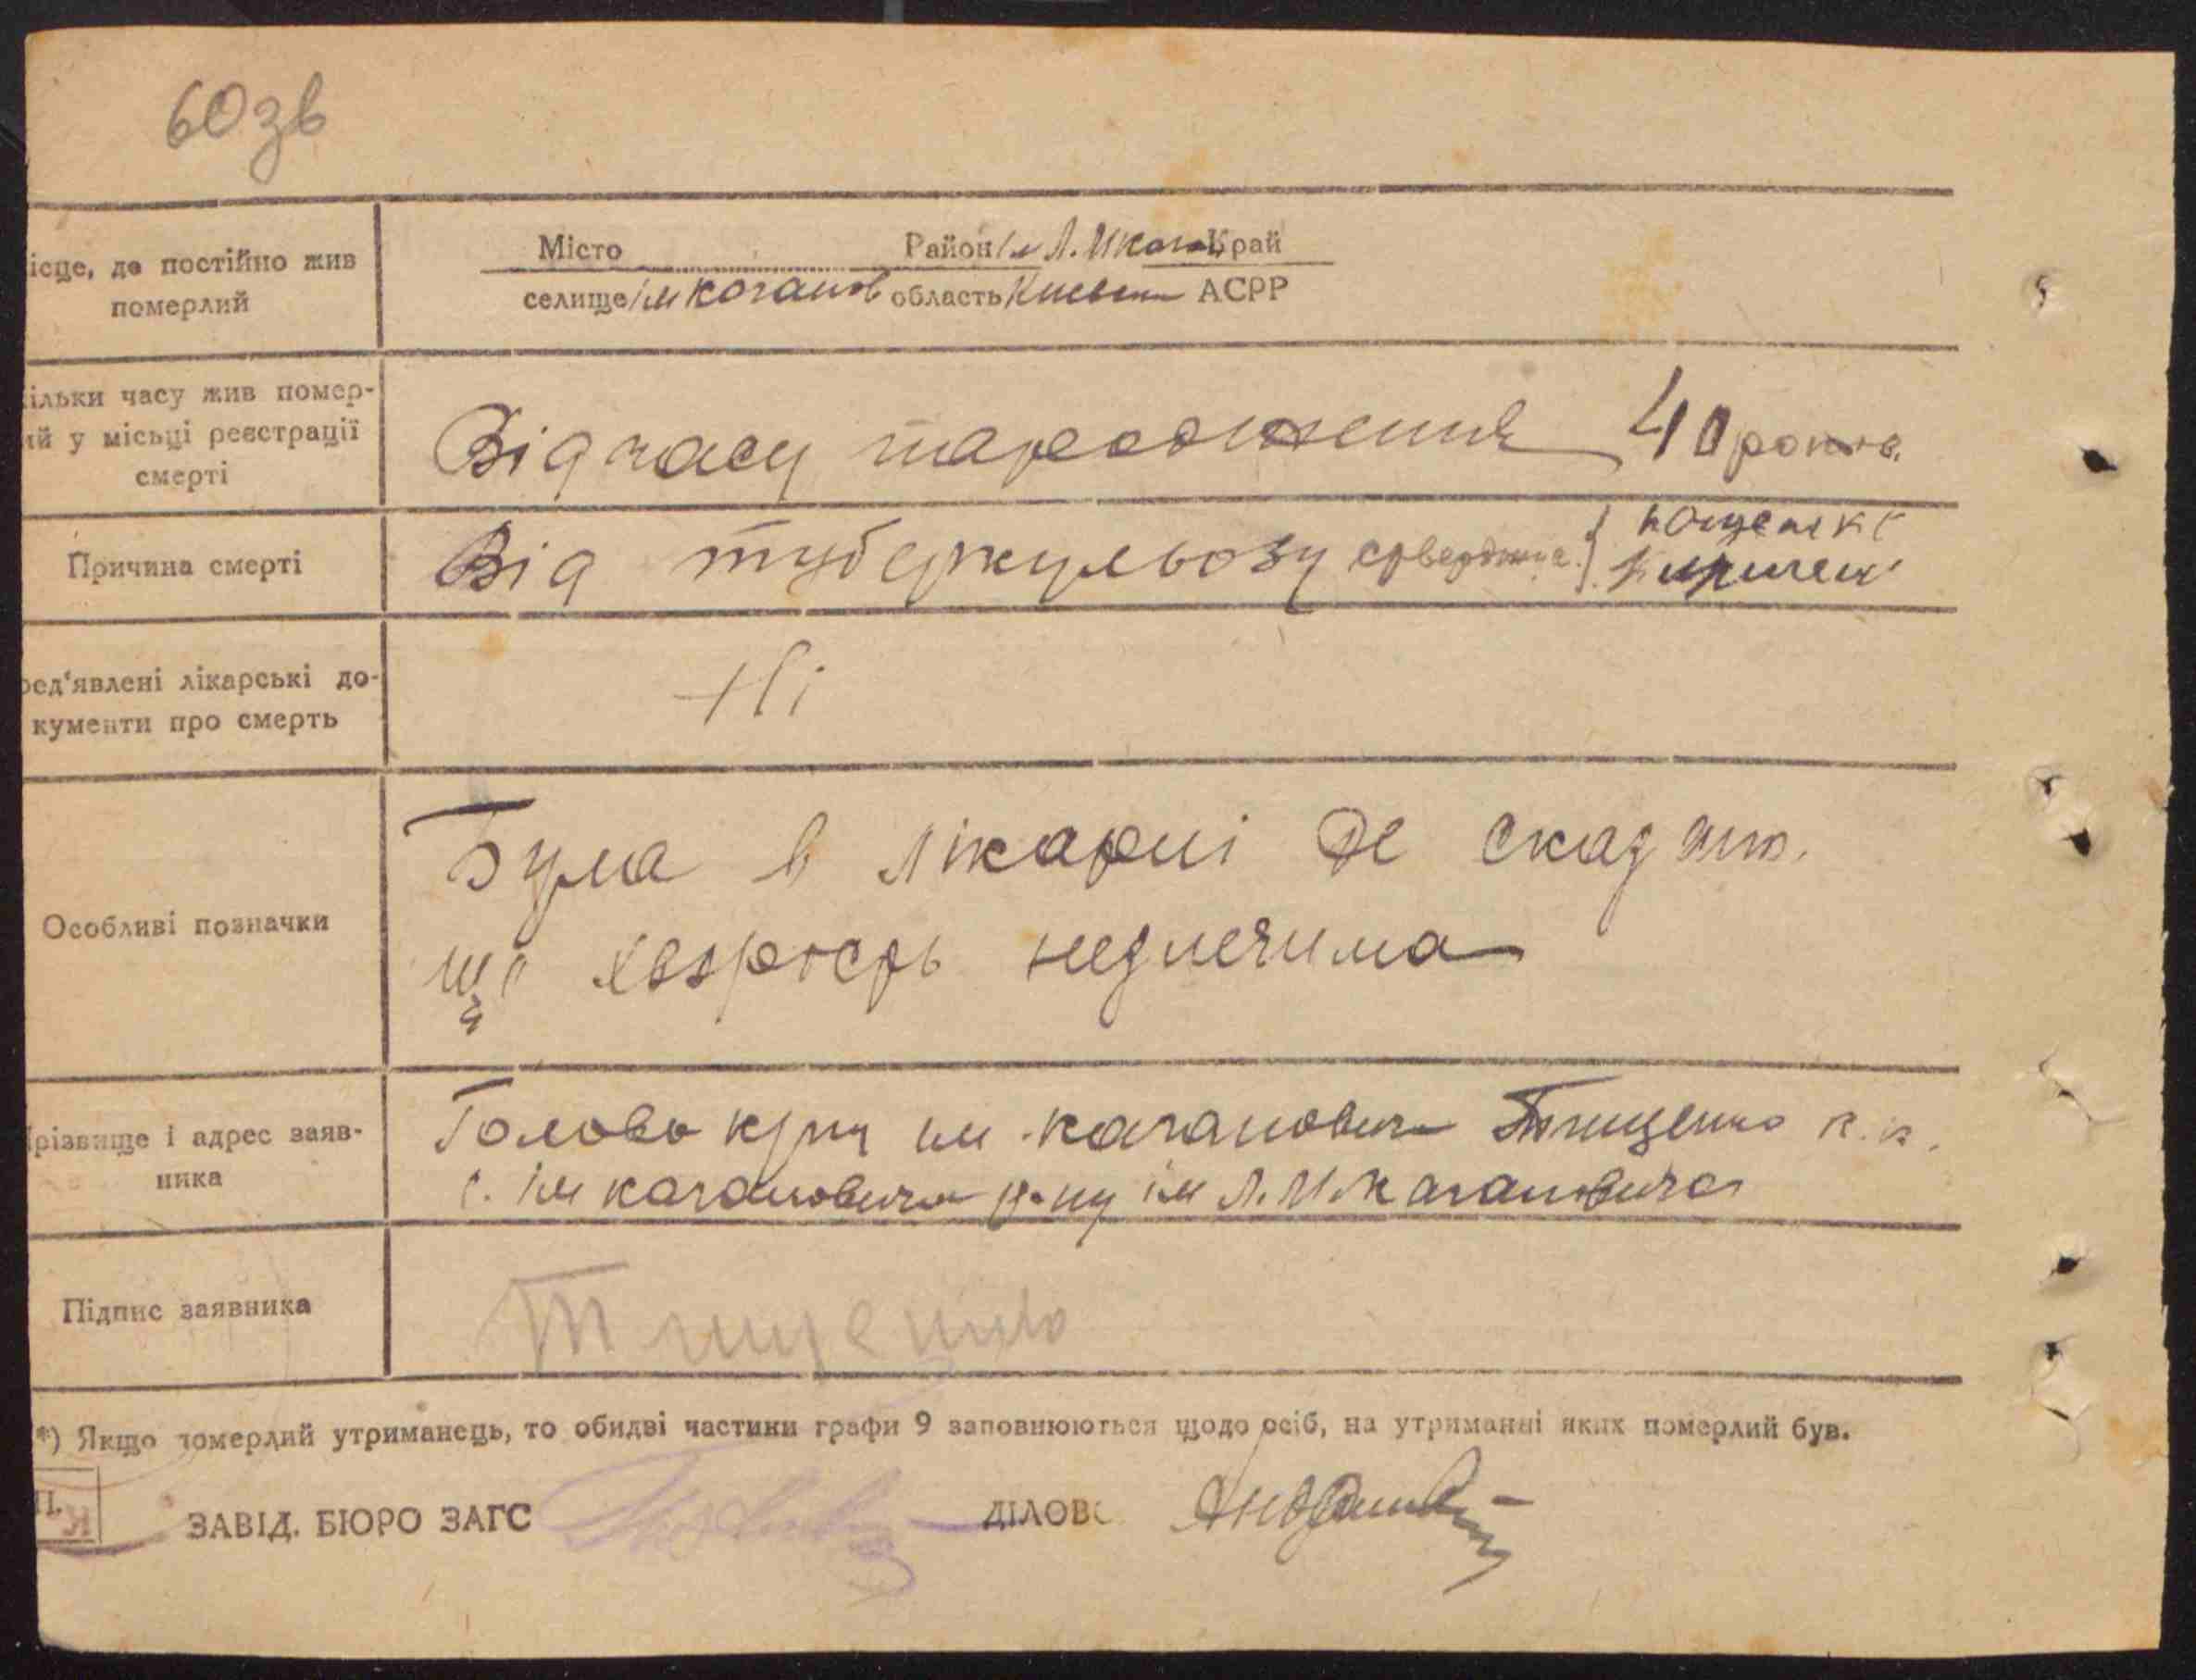 60зв
ісце, де постійно жив
померлий
Місто Район ім Л.М Каган Край
селище ім Коганов область Киевськ АСРР
ільки часу жив помер-
ий у місьці реєстрації
смерті
Від часу народження 40 років
Причина смерті
Від туберкульозу
ред'явлені лікарські до-
кументи про смерть
Ні
Особливі позначки
Була в лікарні де сказали
що хворость неізлечима
різвище і адрес заяв-
ника
Голова ім. Кагановича Тищенко К. К.
с. ім Кагановича р-ну ім Л. М Кагановича
Підпис заявника
Тищенко
*) Якщо померлий утриманець, то обидві частини графи 9 заповнюються щодо осіб, на утриманні яких померлий був.
П.
ЗАВІД. БЮРО ЗАГС ДІЛОВ